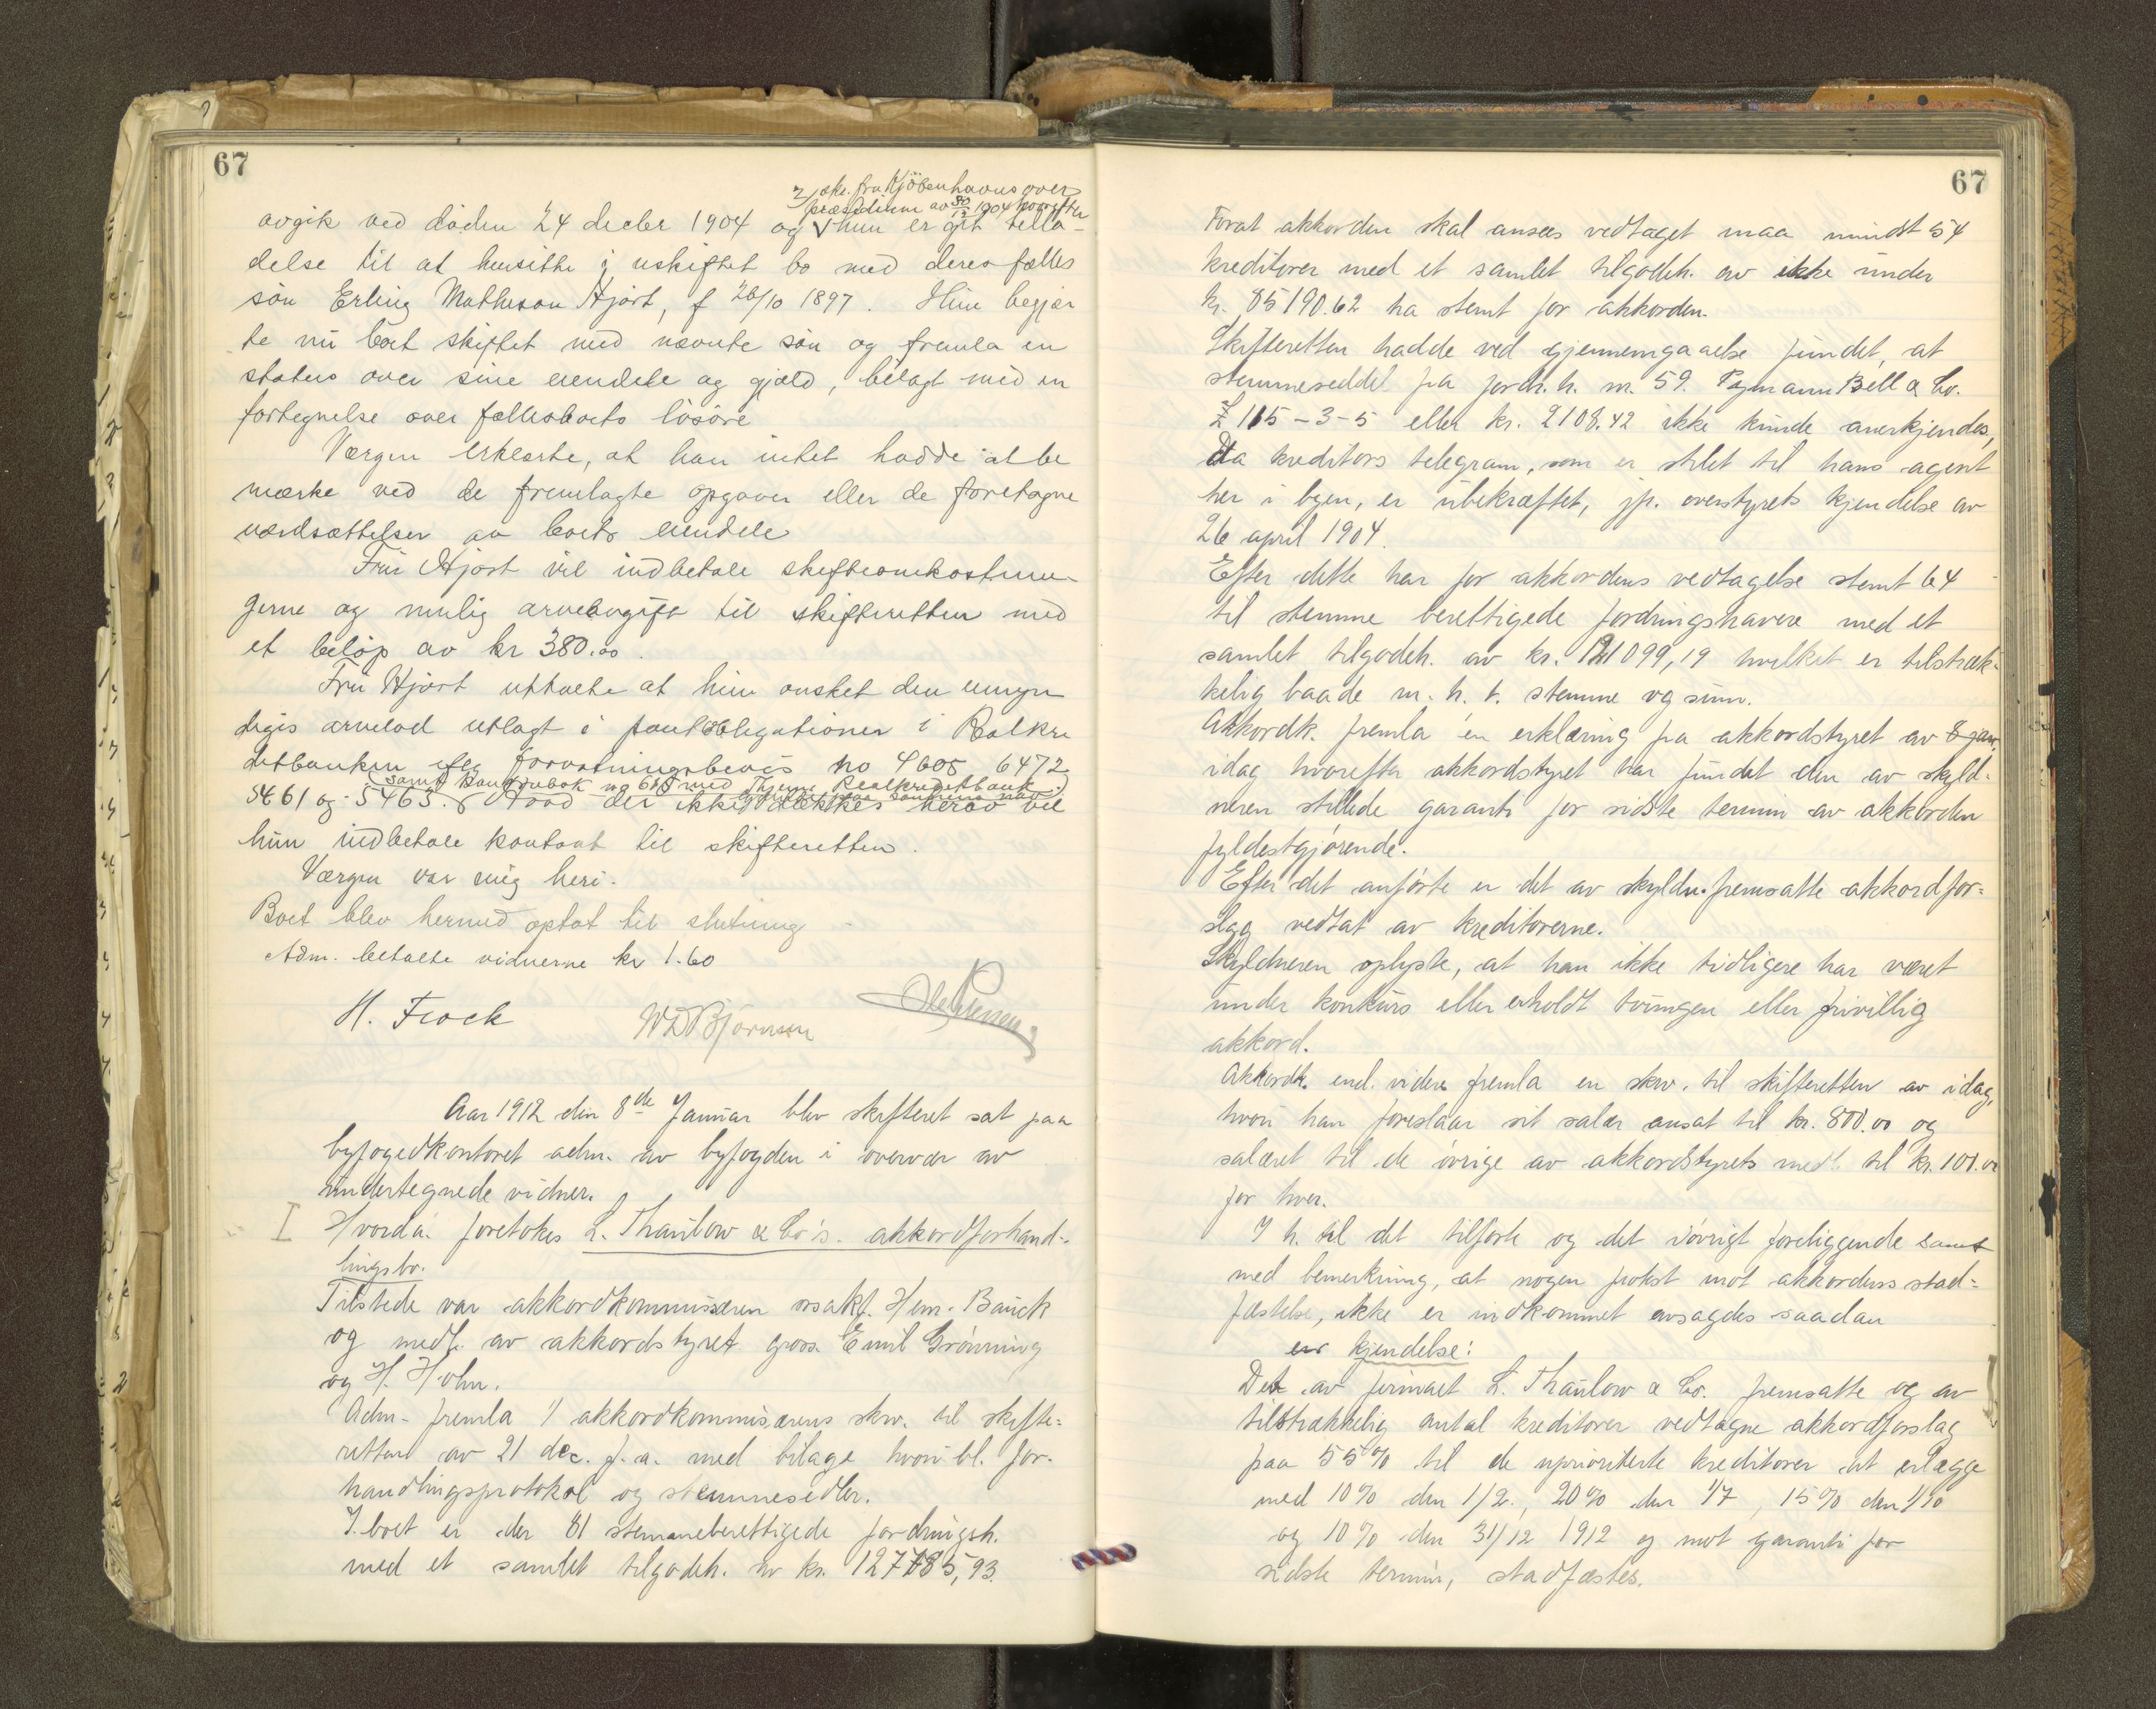 67
skr. fra Kjöbenhavns over
præsidium av 30/12 1904 hvorefter
avgik ved döden 24 decbr 1904 og hun er git tilla-
delse til at hensitte i uskiftet bo med deres fælles
sön Erling Matheson Hjort, f 26/10 1897. Hun begjær
te nu boet skiftet med nævnte sön og fremla en
status over sine eiendele og gjæld, bilagt med en
fortegnelse over fællesboets lösöre
Værgen erklærte, at han intet hadde at be
mærke ved de fremlagte opgaver eller de foretagne
værdsættelser av boets eiendele
Fru Hjort vil indbetale skifteomkostnin-
gerne og mulig arveavgift til skifteretten med
et belöp av kr 380.00
Fru Hjort uttalte at hun önsket den umyn
diges arvelod utlagt i pantobligationer i Realkre
ditbanken iflg forvaringsbevis no 4605 6472
samt bankbok no 615 med Realkreditbank
5461 og 5463. Hvad der ikke dækkes herav vil
hun indbetale kontant til skifteretten.
Værgen var enig heri.
Boet blev hermed optat til slutning
Adm. betalte vidnerne kr 1.60
H. Frock W D Björnson
Aar 1912 den 8de Januar blev skifteret sat paa
byfogedkontoret adm. av byfogden i overvær av
undertegnede vidner.
I Hvorda: foretokes L. Thaulow & Co's. akkordforhand-
lingsbo.
Tilstede var akkordkommissæren orsakf. Hem. Bauck
og medl. av akkordstyret gross. Emil Grönning
og H. Holm.
Adm. fremla 1/ akkordkommisærens skr. til skifte-
retten av 21 dec. f.a. med bilage hvori bl. for-
handlingsprotokol og stemmesedler.
I boet er der 81 stemmeberettigede fordringsh.
med et samlet tilgodeh. av kr. 127785,93.
67
Forat akkorden skal ansees vedtaget maa mindst 54
kreditorer med et samlet tilgodeh. av ikke under
kr. 85190.62 ha stemt for akkorden.
Skifteretten hadde ved gjennemgaaelse fundet, at
stemmeseddel fra fordr.h. nr. 59. Bell & Co.
£ 115-3-5 eller kr. 2108.42 ikke kunde anerkjendes,
Da kreditors telegram, som er stilet til hans agent
her i byen, er ubekræftet, jfr. overstyrets kjendelse av
26 april 1904.
Efter dette har for akkordens vedtagelse stemt 64
til stemme berettigede fordringshavere med et
samlet tilgodeh. av kr. 121099,19 hvilket er tilstræk-
kelig baade m. h. t. stemme og sum.
Akkordk. fremla en erklæring fra akkordstyret av 8 jan.
idag hvorefter akkordstyret har fundet den av skyld-
neren stillede garanti for sidste termin av akkorden
fyldestgjørende.
Efter det anførte er det av skyldn. fremsatte akkordfor-
slag vedtat av kreditorerne.
Skyldneren oplyste, at han ikke tidligere har været
under konkurs eller erholdt tvungen eller frivillig
akkord.
Akkordk. end. videre fremla en skr. til skifteretten av idag,
hvori han foreslaar sit salær ansat til kr. 800.00 og
salæret til de övrige av akkordstyrets medl. til kr. 100.00
for hver.
I h. til det tilførte og det iövrigt foreliggende samt
med bemerkning, at nogen protest mot akkordens stad-
fæstelse, ikke er indkommet avsagdes saadan
kjendelse:
Det av firmaet L. Thaulow & Co. fremsatte og av
tilstrækkelig antal kreditorer vedtagne akkordforslag
paa 55% til de uprioriterte kreditorer at erlægge
med 10% den 1/2., 20% den 1/7, 15% den 1/10
og 10% den 31/12 1912 og mot garanti for
sidste termin, stadfæstes.